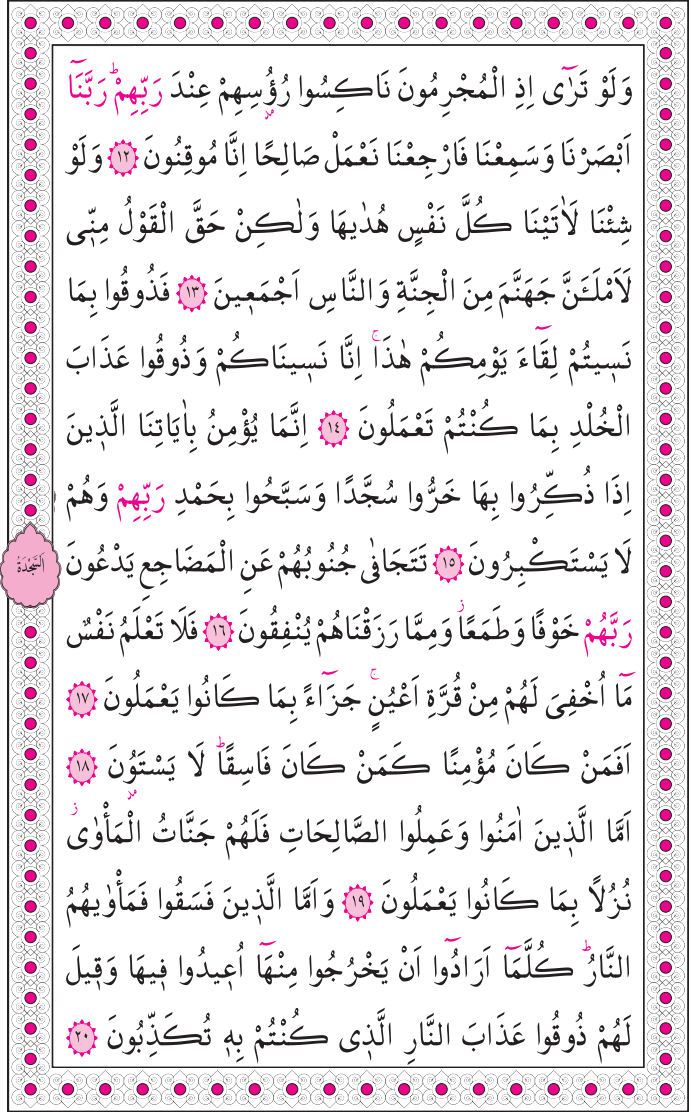 وَلَوْ تَرٰٓى اِذِ الْمُجْرِمُونَ نَاكِسُوا رُؤُ۫سِهِمْ عِنْدَ رَبِّهِمْۜ رَبَّنَٓا
اَبْصَرْنَا وَسَمِعْنَا فَارْجِعْنَا نَعْمَلْ صَالِحًا اِنَّا مُوقِنُونَ ﴿١٢﴾ وَلَوْ
شِئْنَا لَاٰتَيْنَا كُلَّ نَفْسٍ هُدٰيهَا وَلٰكِنْ حَقَّ الْقَوْلُ مِنّ۪ى
لَاَمْلَـَٔنَّ جَهَنَّمَ مِنَ الْجِنَّةِ وَالنَّاسِ اَجْمَع۪ينَ ﴿١٣﴾ فَذُوقُوا بِمَا
نَس۪يتُمْ لِقَٓاءَ يَوْمِكُمْ هٰذَاۚ اِنَّا نَس۪ينَاكُمْ وَذُوقُوا عَذَابَ
الْخُلْدِ بِمَا كُنْتُمْ تَعْمَلُونَ ﴿١٤﴾ اِنَّمَا يُؤْمِنُ بِاٰيَاتِنَا الَّذ۪ينَ
اِذَا ذُكِّرُوا بِهَا خَرُّوا سُجَّدًا وَسَبَّحُوا بِحَمْدِ رَبِّهِمْ وَهُمْ
لَا يَسْتَكْبِرُونَ ﴿١٥﴾ تَتَجَافٰى جُنُوبُهُمْ عَنِ الْمَضَاجِعِ يَدْعُونَ
اَلسَّجْدَةُ
رَبَّهُمْ خَوْفًا وَطَمَعًاۘ وَمِمَّا رَزَقْنَاهُمْ يُنْفِقُونَ ﴿١٦﴾ فَلَا تَعْلَمُ نَفْسٌ
مَٓا اُخْفِىَ لَهُمْ مِنْ قُرَّةِ اَعْيُنٍۚ جَزَٓاءً بِمَا كَانُوا يَعْمَلُونَ ﴿١٧﴾
اَفَمَنْ كَانَ مُؤْمِنًا كَمَنْ كَانَ فَاسِقًاۜ لَا يَسْتَوُ۫نَ ﴿١٨﴾
اَمَّا الَّذ۪ينَ اٰمَنُوا وَعَمِلُوا الصَّالِحَاتِ فَلَهُمْ جَنَّاتُ الْمَأْوٰىۘ
نُزُلًا بِمَا كَانُوا يَعْمَلُونَ ﴿١٩﴾ وَاَمَّا الَّذ۪ينَ فَسَقُوا فَمَأْوٰيهُمُ
النَّارُۜ كُلَّمَٓا اَرَادُٓوا اَنْ يَخْرُجُوا مِنْهَٓا اُع۪يدُوا ف۪يهَا وَق۪يلَ
لَهُمْ ذُوقُوا عَذَابَ النَّارِ الَّذ۪ى كُنْتُمْ بِه۪ تُكَذِّبُونَ ﴿٢٠﴾